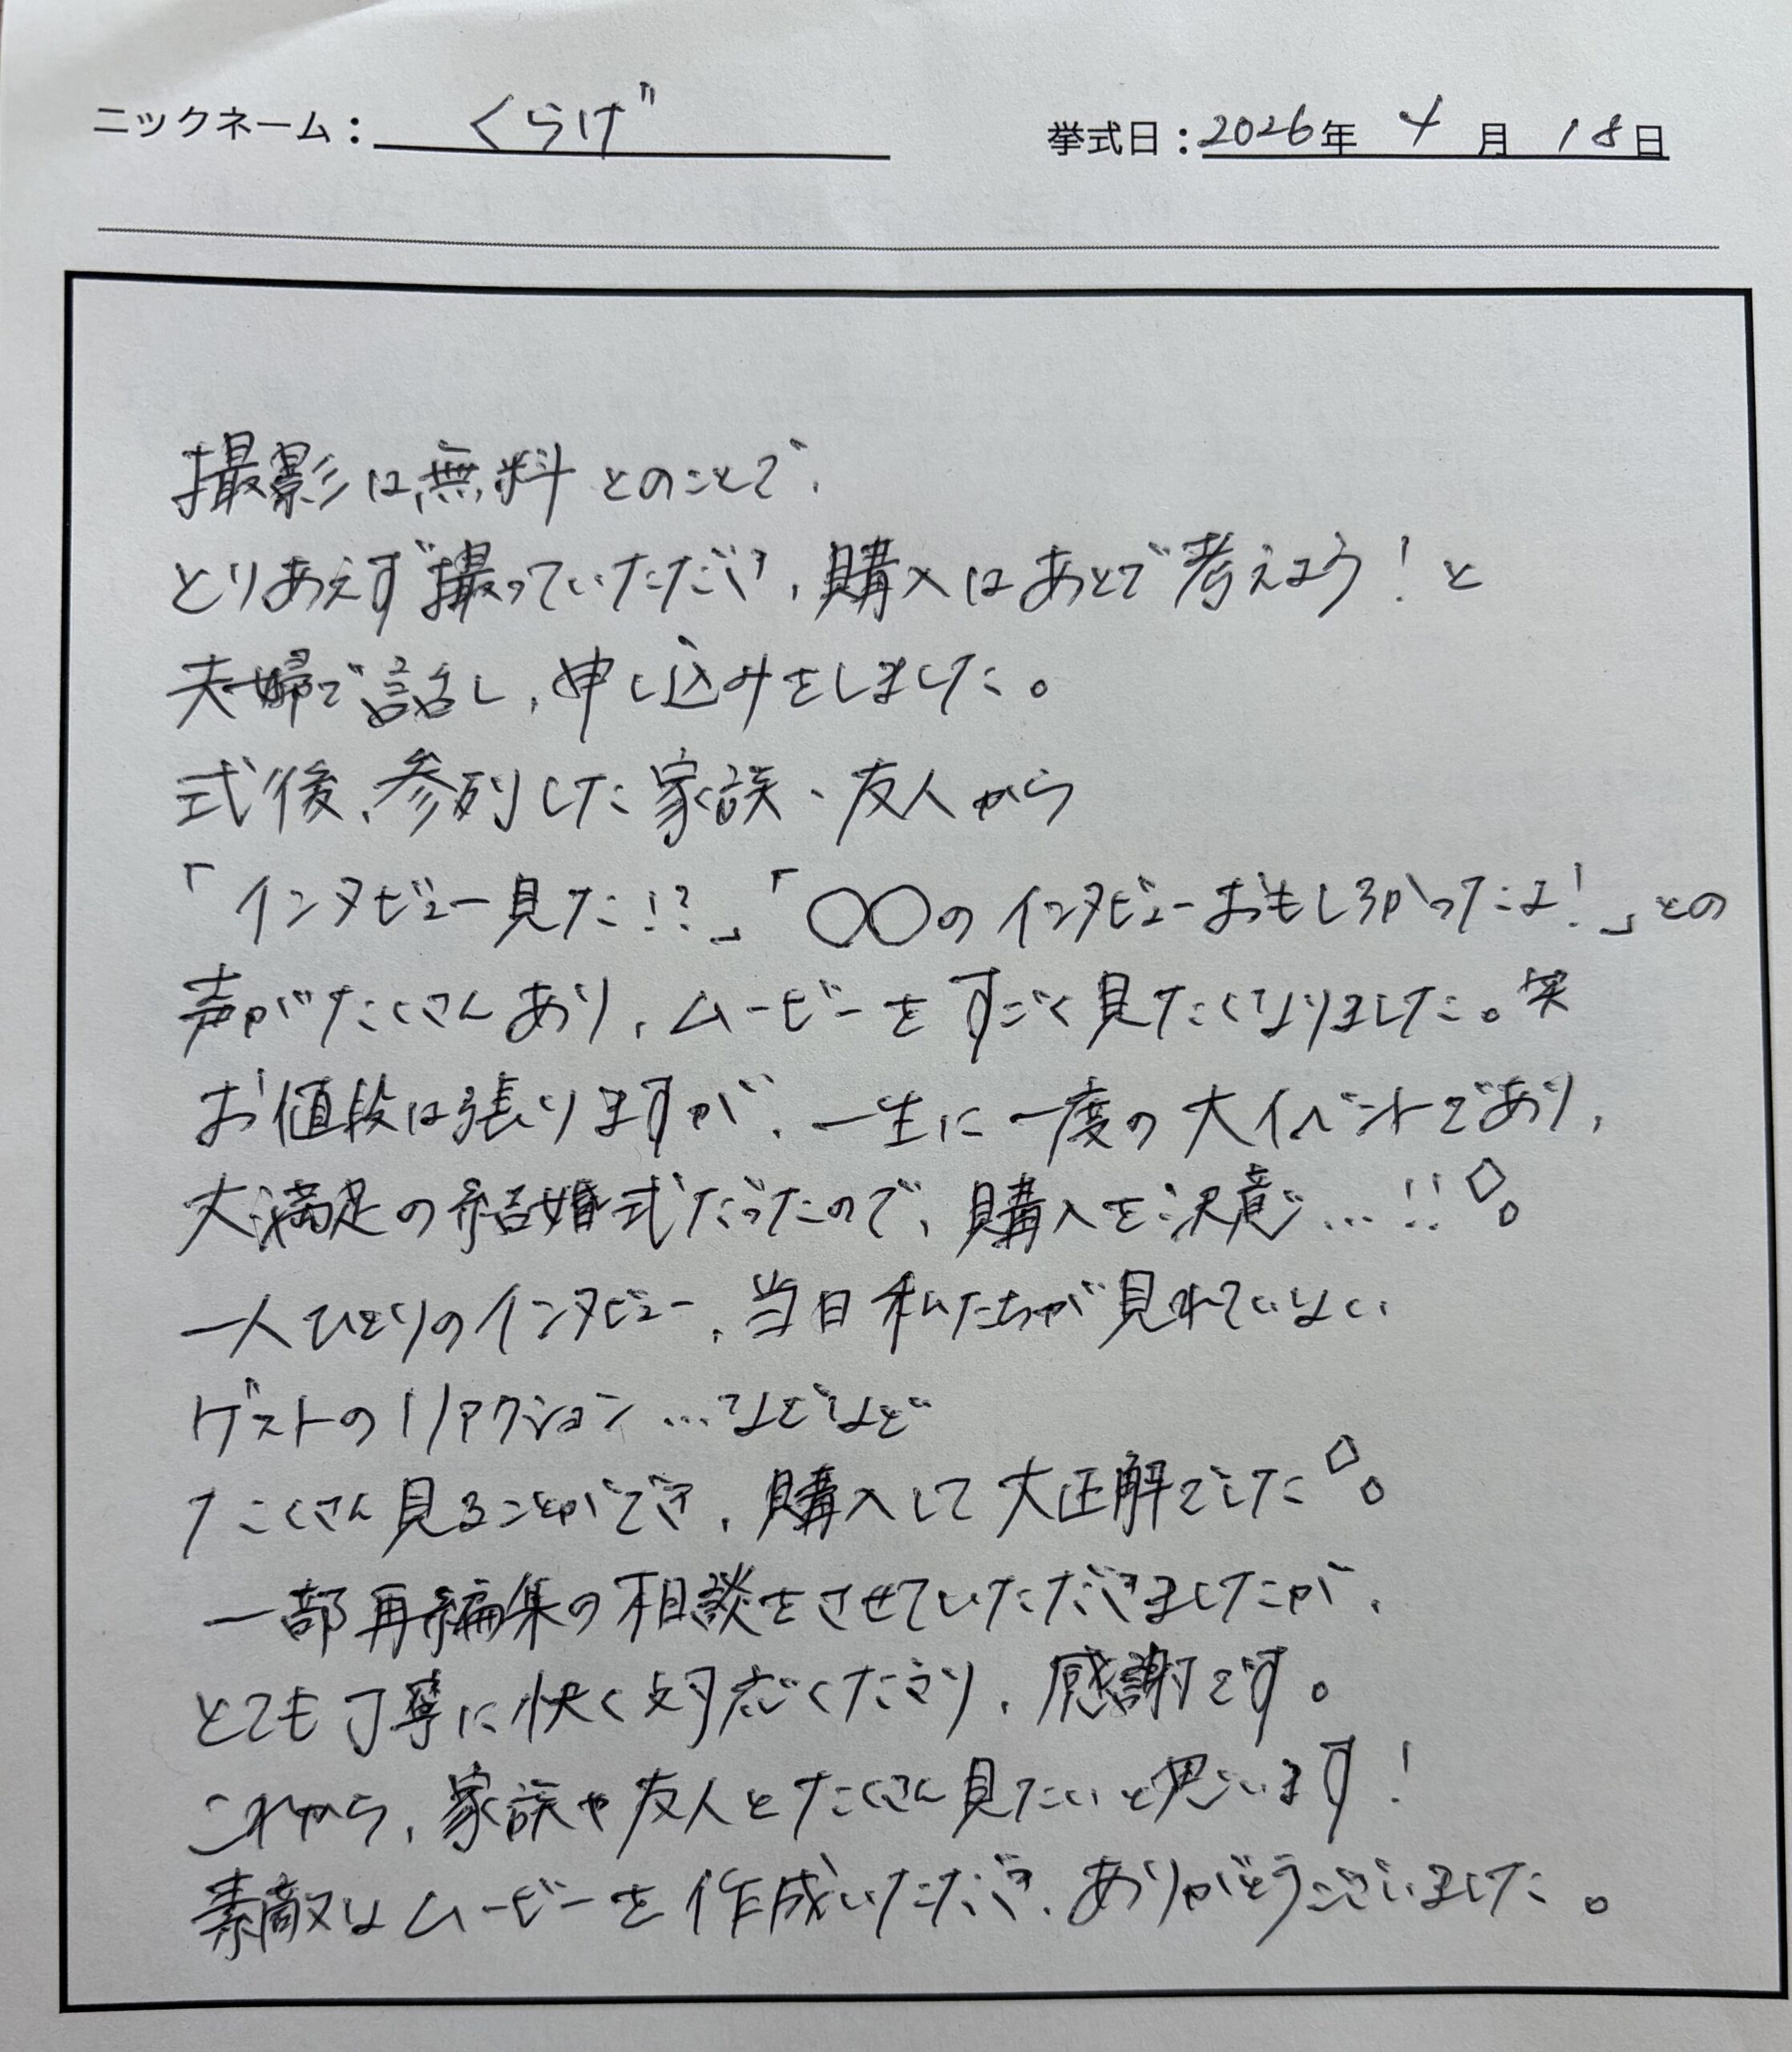 ニックネーム：くらげ
挙式日：2026年 4月 18日
撮影は無料とのことで、
とりあえず撮っていただき、購入はあとで考えよう！と
夫婦で話し、申し込みをしました。
式後、参列した家族、友人から
「インタビュー見た!?」「〇〇のインタビューおもしろかったよ！」との
声がたくさんあり、ムービーをすごく見たくなりました。笑
お値段は張りますが、一生に一度の大イベントであり、
大満足の結婚式だったので、購入を決意…!!
一人ひとりのインタビュー、当日私たちが見れていない
ゲストのリアクション…などなど
たくさん見ることができ、購入して大正解でした
一部再編集の相談をさせていただきましたが、
とても丁寧に快く対応くださり、感謝です。
これから、家族や友人とたくさん見たいと思います！
素敵なムービーを作成いただき、ありがとうございました。